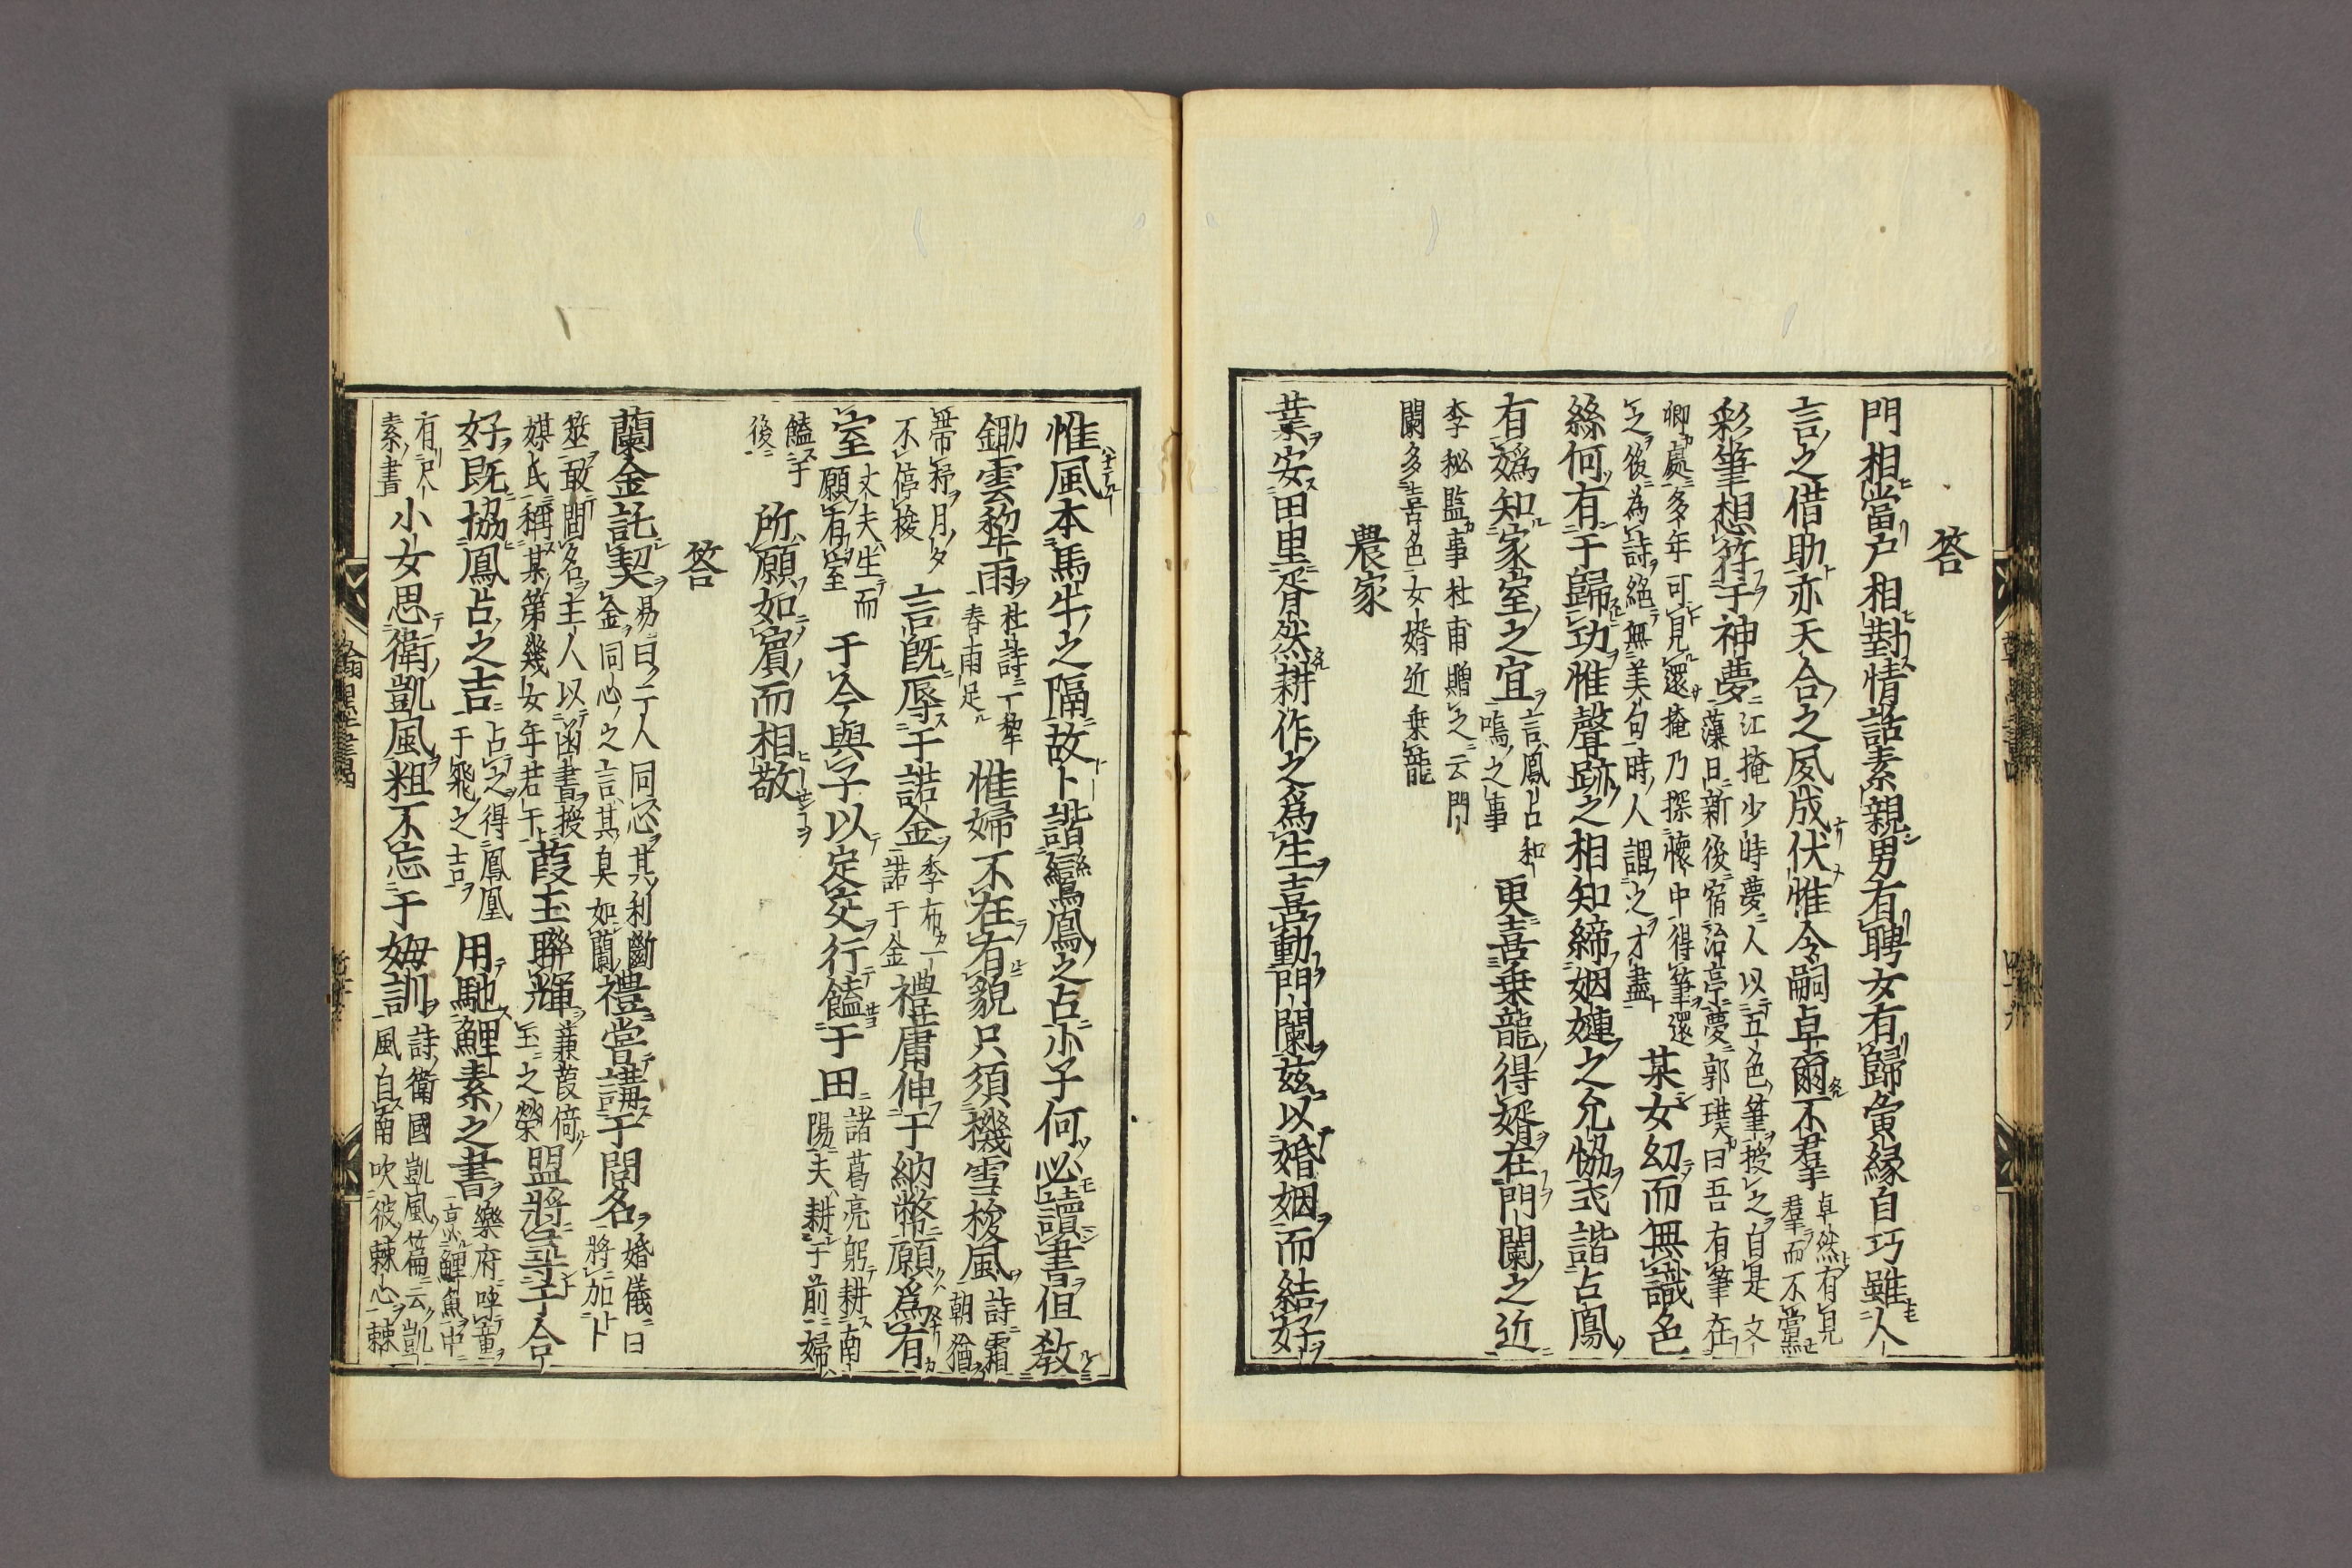 答
門相當戸相對情話素親男有聘女有歸寅縁自巧雖人
言之借助亦天合之夙成伏惟令嗣卓爾不羣卓然有見
羣而不黨
彩筆想符于神夢江掩少時夢人以五色筆授之自是文
藻日新後宿冶亭夢郭璞曰吾有筆在
卿處多年可見還掩乃探懷中得筆還
之後為詩絕無美句時人謂之才盡某女幻而無識色
絲何有于歸功惟聲跡之相知締姻嫤之允恊式諧占鳳
有嬀知家室之宜言鳳占和
鳴之事更喜乗龍得婿在門闌之近
李秘監事杜甫贈之云門
闌多喜色女婿近乗龍
農家
業安田里胥然耕作之爲生喜動門闌兹以婚姻而結好
惟風本馬牛之隔故卜諧鸞鳳之占小子何必讀書但敎
鋤雲犂雨杜詩一犂
春雨足惟婦不在有貌只須機雪梭風詩霜
朝猶
帶月夕
不停梭言旣辱于諾金季布一
諾于金禮庸伸于納幣願爲有
室丈夫生而
願有室于今與子以定交行饁于田諸葛亮躬耕南
陽夫耕于前婦
饁于
後所願如賓而相敬
答
蘭金託契易曰二人同心其利斷
金同心之言其臭如蘭禮嘗講于問名婚儀曰
將加卜
筮敢問名主人以函書授
媒氏稱某第幾女年若干葭玉聯輝蒹葭倚
玉之榮盟將尋于合
好既協鳳占之吉占之得鳳凰
于飛之吉用馳鯉素之書樂府呼童
烹鯉魚中
有尺
素書小女思衛凱風粗不忘于姆訓詩衛國凱風篇云凱
風自南吹彼棘心棘